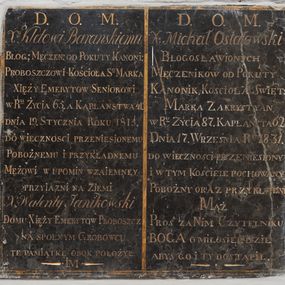 D. O. M.
X. Kletowi Baranskiemu
Błog: Męczen: od Pokuty Kanoni:
Proboszczowi Kościoła Sº Marka
Xięży Emerytow Seniorowi
w Rº Życia 63, a Kapłaństwa
dnia 19. Stycznia Roku 1814.
do wieczności przeniesionemu
Pobożnemu i przykładnemu
Mężowi w upomin wzaiemney
przyiazni na Ziemi
X. Walenty Janikowski
Domu Xięży Emerytow Proboszcz
na spolnym Grobowcu
te pamiątkę obok położył
D. O. M.
X. Michał Ostrowski
Błogosławionych
Męczennikow od Pokuty
Kanonik, Kościoła S. Święt
Marka Zakrystyan
w Rº Życia 87. Kapłań: 62
Dnia 17. Września R. 1831
do wieczności przeniesiony
i w tym Kościele pochowany
Pobożny oraz przykładny
Mąż
Proś za Nim Czytelniku
BOGA o miłosierdzie
abyś go i ty dostąpił.